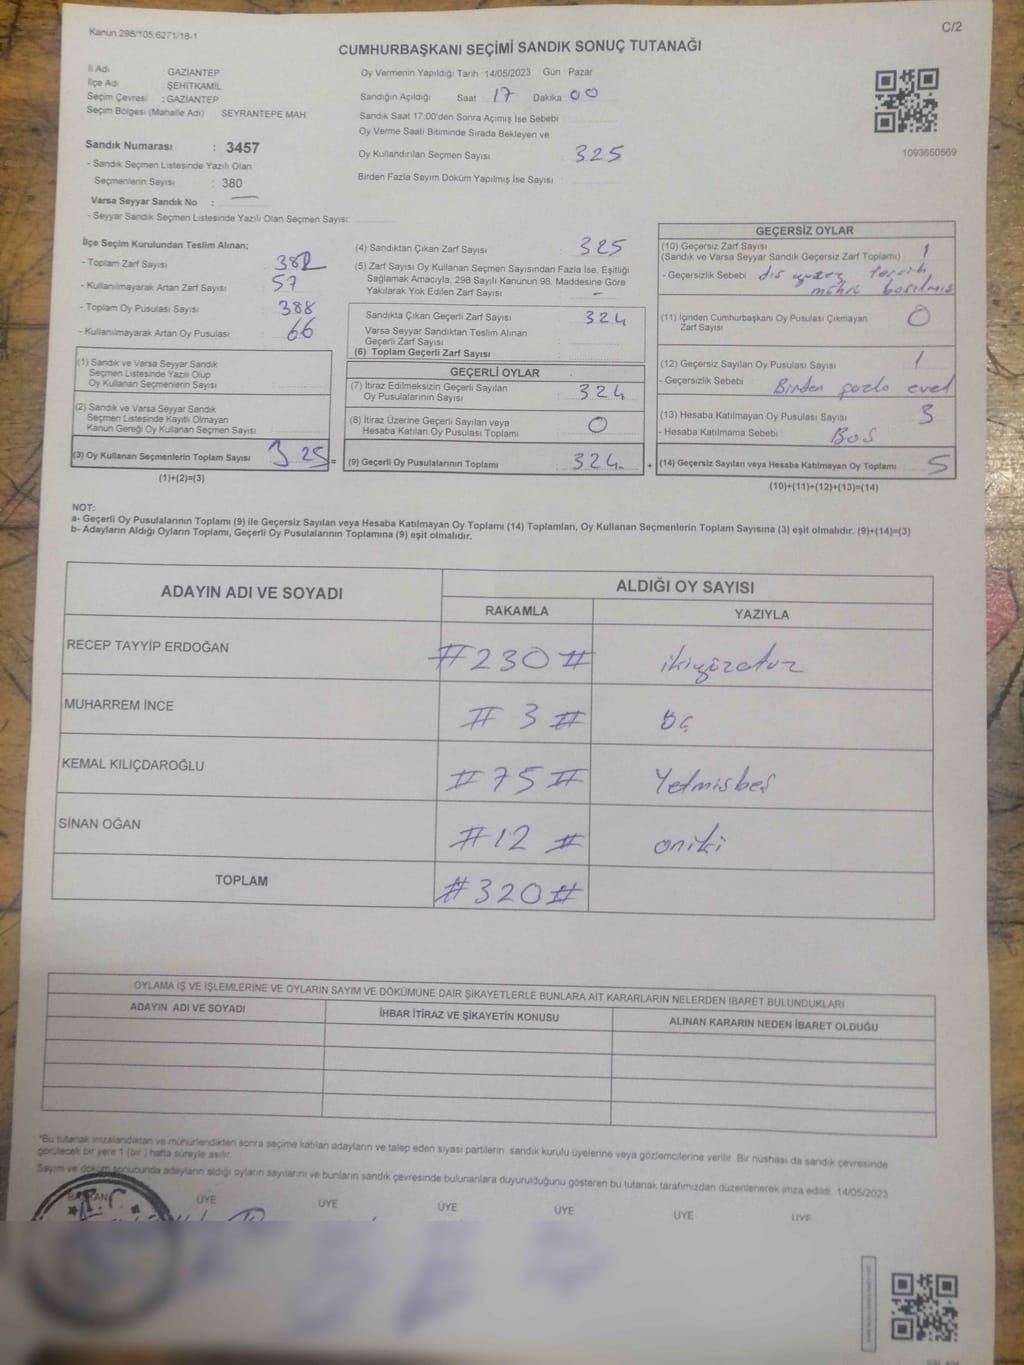 Kanun.298/105.6271/18-1
C/2
CUMHURBAŞKANI SEÇİMİ SANDIK SONUÇ TUTANAĞI
İl Adı : GAZİANTEP
İlçe Adı : ŞEHİTKAMİL
Seçim Çevresi : GAZİANTEP
Seçim Bölgesi (Mahalle Adı) SEYRANTEPE MAH
Sandık Numarası : 3457
- Sandık Seçmen Listesinde Yazılı Olan
Seçmenlerin Sayısı : 380
Varsa Seyyar Sandık No : —
- Seyyar Sandık Seçmen Listesinde Yazılı Olan Seçmen Sayısı:
Oy Vermenin Yapıldığı Tarih 14/05/2023 Gün : Pazar
Sandığın Açıldığı Saat 17 Dakika 00
Sandık Saat 17:00'den Sonra Açılmış İse Sebebi
Oy Verme Saati Bitiminde Sırada Bekleyen ve
Oy Kullandırılan Seçmen Sayısı 325
Birden Fazla Sayım Döküm Yapılmış İse Sayısı
1093650569
İlçe Seçim Kurulundan Teslim Alınan;
- Toplam Zarf Sayısı 382
- Kullanılmayarak Artan Zarf Sayısı 57
- Toplam Oy Pusulası Sayısı 388
- Kullanılmayarak Artan Oy Pusulası 66
(1) Sandık ve Varsa Seyyar Sandık
Seçmen Listesinde Yazılı Olup
Oy Kullanan Seçmenlerin Sayısı
(2) Sandık ve Varsa Seyyar Sandık
Seçmen Listesinde Kayıtlı Olmayan
Kanun Gereği Oy Kullanan Seçmen Sayısı
(3) Oy Kullanan Seçmenlerin Toplam Sayısı 325 =
(1)+(2)=(3)
(4) Sandıktan Çıkan Zarf Sayısı 325
(5) Zarf Sayısı Oy Kullanan Seçmen Sayısından Fazla İse, Eşitliği
Sağlamak Amacıyla, 298 Sayılı Kanunun 98. Maddesine Göre
Yakılarak Yok Edilen Zarf Sayısı -
Sandıkta Çıkan Geçerli Zarf Sayısı 324
Varsa Seyyar Sandıktan Teslim Alınan
Geçerli Zarf Sayısı
(6) Toplam Geçerli Zarf Sayısı
GEÇERLİ OYLAR
(7) İtiraz Edilmeksizin Geçerli Sayılan
Oy Pusulalarının Sayısı 324
(8) İtiraz Üzerine Geçerli Sayılan veya
Hesaba Katılan Oy Pusulası Toplamı 0
(9) Geçerli Oy Pusulalarının Toplamı 324 +
GEÇERSİZ OYLAR
(10) Geçersiz Zarf Sayısı 1
(Sandık ve Varsa Seyyar Sandık Geçersiz Zarf Toplamı)
- Geçersizlik Sebebi dış tercih
mührü basılmış
(11) İçinden Cumhurbaşkanı Oy Pusulası Çıkmayan
Zarf Sayısı 0
(12) Geçersiz Sayılan Oy Pusulası Sayısı 1
- Geçersizlik Sebebi Birden fazla evet
(13) Hesaba Katılmayan Oy Pusulası Sayısı 3
- Hesaba Katılmama Sebebi Boş
(14) Geçersiz Sayılan veya Hesaba Katılmayan Oy Toplamı 5
(10)+(11)+(12)+(13)=(14)
NOT:
a- Geçerli Oy Pusulalarının Toplamı (9) ile Geçersiz Sayılan veya Hesaba Katılmayan Oy Toplamı (14) Toplamları, Oy Kullanan Seçmenlerin Toplam Sayısına (3) eşit olmalıdır. (9)+(14)=(3)
b- Adayların Aldığı Oyların Toplamı, Geçerli Oy Pusulalarının Toplamına (9) eşit olmalıdır.
ADAYIN ADI VE SOYADI ALDIĞI OY SAYISI
RAKAMLA YAZIYLA
RECEP TAYYİP ERDOĞAN #230# ikiyüzotuz
MUHARREM İNCE # 3 # üç
KEMAL KILIÇDAROĞLU #75# Yetmişbeş
SİNAN OĞAN #12 # oniki
TOPLAM #320#
OYLAMA İŞ VE İŞLEMLERİNE VE OYLARIN SAYIM VE DÖKÜMÜNE DAİR ŞİKAYETLERLE BUNLARA AİT KARARLARIN NELERDEN İBARET BULUNDUKLARI
ADAYIN ADI VE SOYADI İHBAR İTİRAZ VE ŞİKAYETİN KONUSU ALINAN KARARIN NEDEN İBARET OLDUĞU
*Bu tutanak imzalandıktan ve mühürlendikten sonra seçime katılan adayların ve talep eden siyasi partilerin sandık kurulu üyelerine veya gözlemcilerine verilir. Bir nüshası da sandık çevresinde
görülecek bir yere 1 (bir ) hafta süreyle asılır.
Sayım ve döküm sonucunda adayların aldığı oyların sayılarını ve bunların sandık çevresinde bulunanlara duyurulduğunu gösteren bu tutanak tarafımızdan düzenlenerek imza edildi. 14/05/2023
BAŞKAN ÜYE ÜYE ÜYE ÜYE ÜYE ÜYE
A.C.